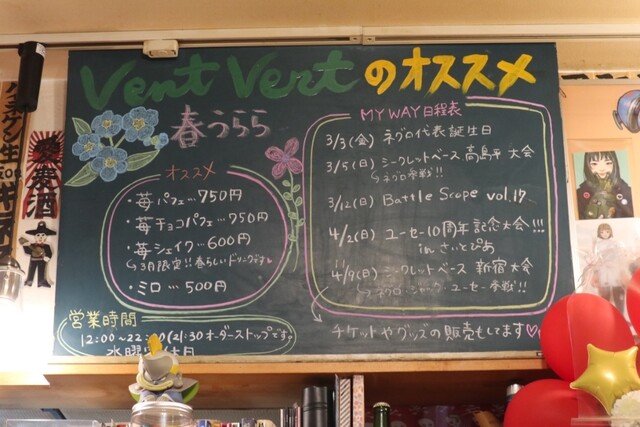 Vent Vert のオススメ
春うらら
オススメ
・苺パフェ…750円
・苺チョコパフェ…750円
・苺シェイク…600円
↳3月限定!!春らしいドリンクです♥
・ミロ…500円
営業時間
12:00~22:00(21:30オーダーストップです
水曜定休日
MY WAY日程表
3/3(金) ネグロ代表誕生日
3/5(日) シークレットベース 高島平大会
↳ネグロ参戦!!
3/12(日) Battle Scope vol.17
4/2(日) ユーセー10周年記念大会!!!
in さいとぴあ
4/9(日) シークレットベース 新宿大会
↳ネグロ・ジャック ユーセー参戦!!
チケットやグッズの販売もしてます♡